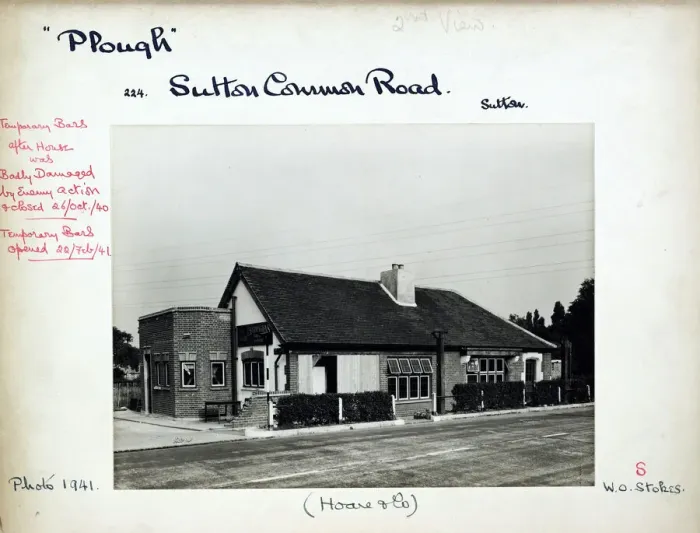 2nd View.
"Plough"
224. Sutton Common Road.
Sutton.
Temporary Bars
after House
was
Badly Damaged
by Enemy action
& closed 26/Oct./40
Temporary Bars
opened 22/Feb/41.
Photo 1941.
(Hoare & Co)
S
W.O. Stokes.